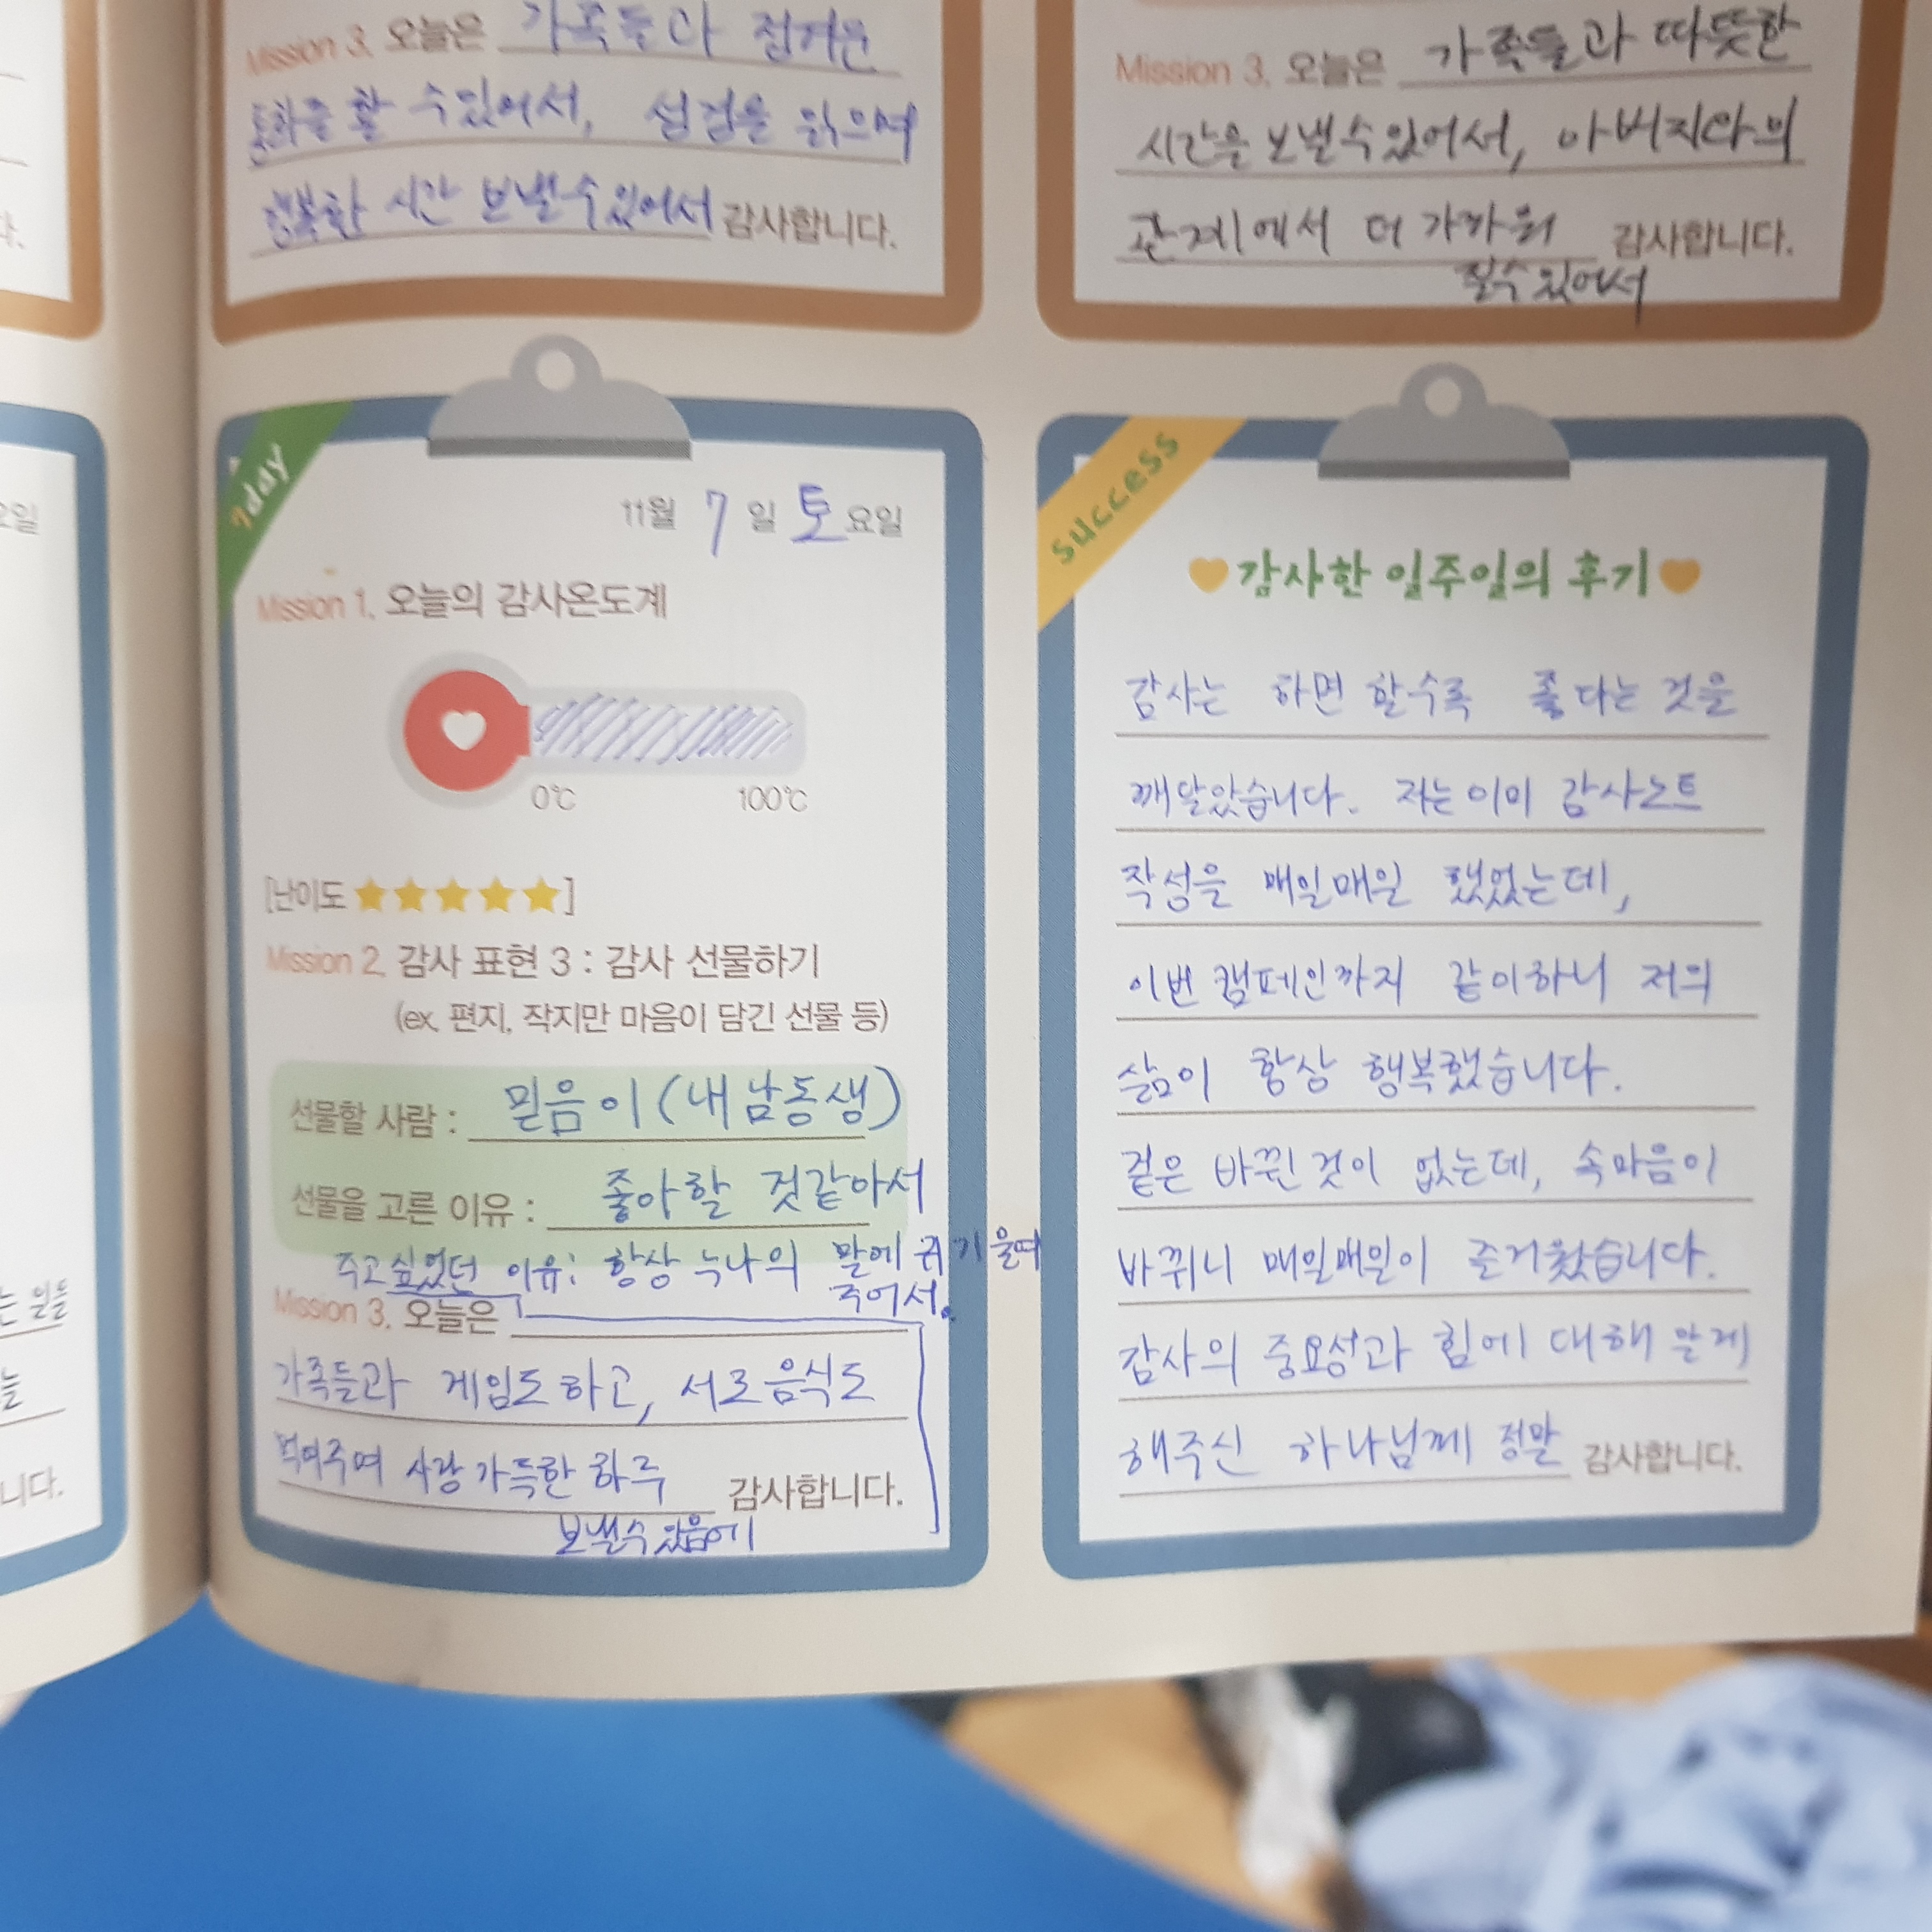 Mission 3. 오늘은 가족들과 즐거운
통화를 할 수 있어서, 성경을 읽으며
행복한 시간 보낼 수 있어서 감사합니다.
Mission 3. 오늘은 가족들과 따뜻한
시간을 보낼 수 있어서, 아버지와의
관계에서 더 가까워 감사합니다.
질 수 있어서
요일
는 일들
늘
니다.
7day
11월 7일 토요일
Mission 1. 오늘의 감사온도계
0℃ 100℃
[난이도 ★★★★★]
Mission 2. 감사 표현 3 : 감사 선물하기
(ex. 편지, 작지만 마음이 담긴 선물 등)
선물할 사람 : 믿음이 (내 남동생)
선물을 고른 이유 : 좋아할 것같아서
주고싶었던 이유: 항상 누나의 말에 귀 기울여
주어서.
Mission 3. 오늘은
가족들과 게임도 하고, 서로 음식도
먹여주며 사랑 가득한 하루 감사합니다.
보낼수 있음에
success
감사한 일주일의 후기
감사는 하면 할수록 좋다는 것을
깨달았습니다. 저는 이미 감사노트
작성을 매일매일 했었는데,
이번 캠페인까지 같이하니 저의
삶이 항상 행복했습니다.
겉은 바뀐 것이 없는데, 속마음이
바뀌니 매일매일이 즐거웠습니다.
감사의 중요성과 힘에 대해 알게
해주신 하나님께 정말 감사합니다.